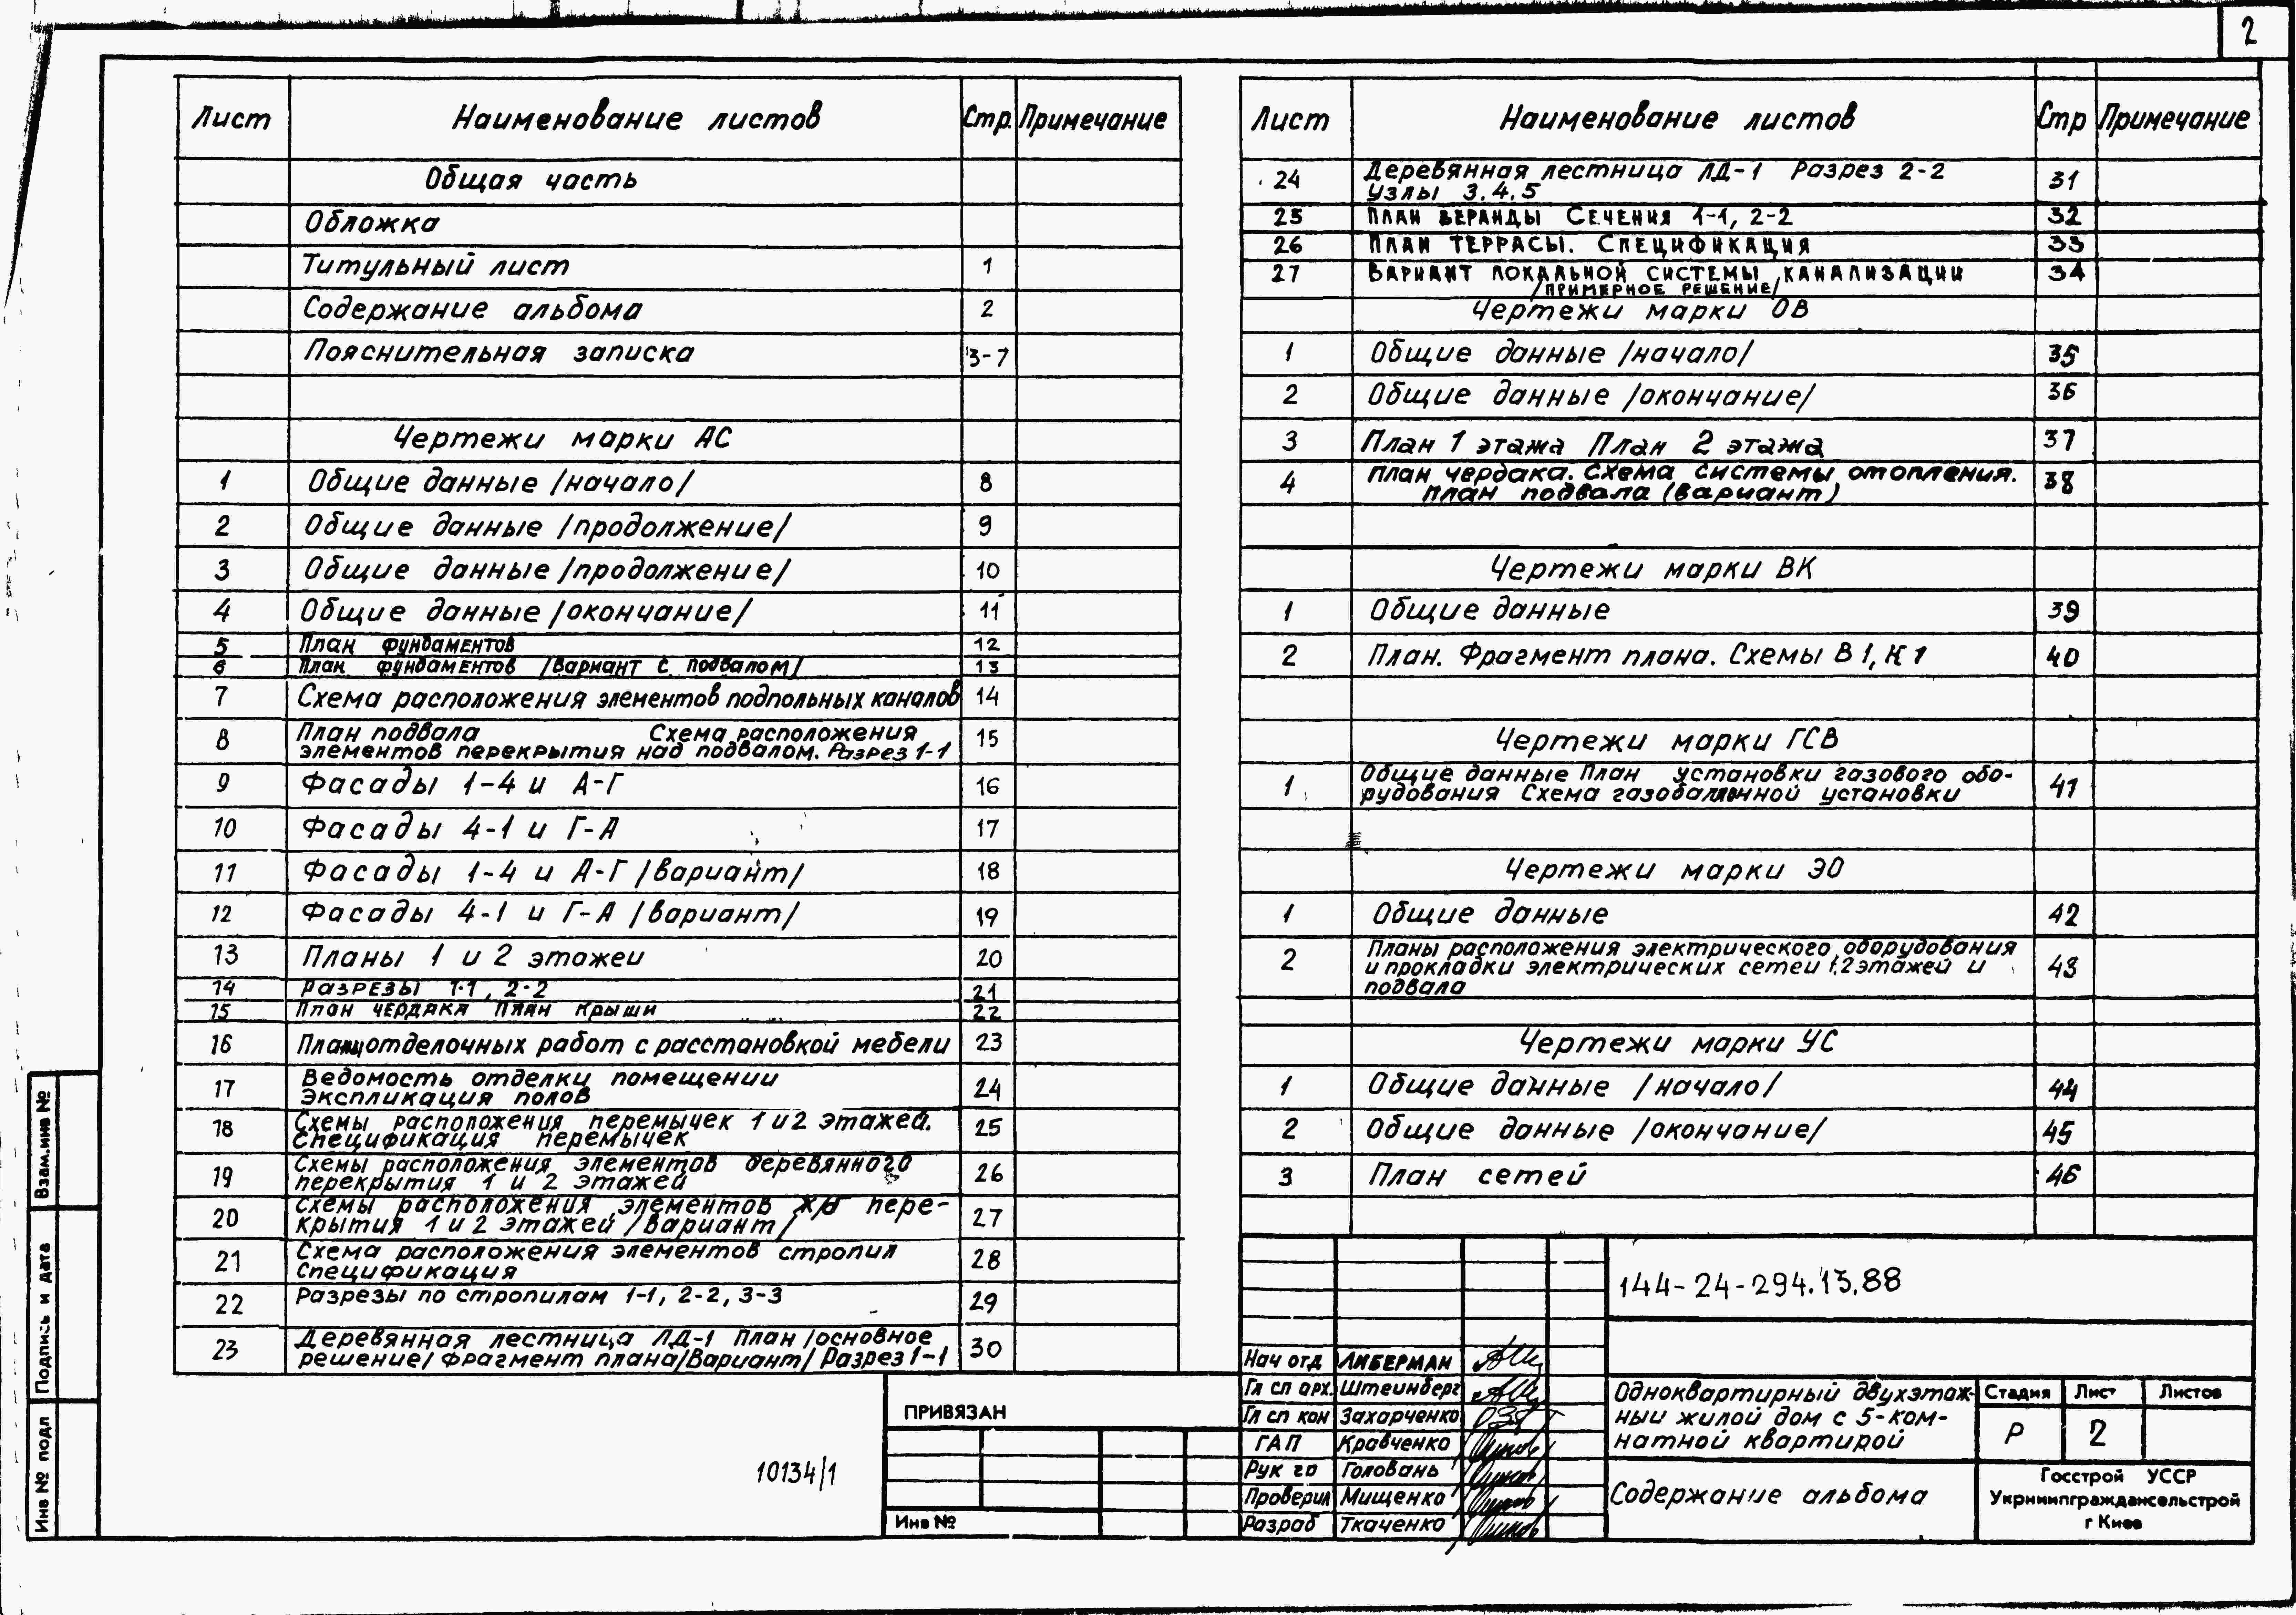 2
Лист Наименование листов Стр. Примечание
Общая часть
Обложка
Титульный лист 1
Содержание альбома 2
Пояснительная записка 3-7
Чертежи марки АС
1 Общие данные /начало/ 8
2 Общие данные /продолжение/ 9
3 Общие данные /продолжение/ 10
4 Общие данные /окончание/ 11
5 План фундаментов 12
6 План фундаментов /вариант с подвалом/ 13
7 Схема расположения элементов подпольных каналов 14
8 План подвала Схема расположения 15
элементов перекрытия над подвалом. Разрез 1-1
9 Фасады 1-4 и А-Г 16
10 Фасады 4-1 и Г-А 17
11 Фасады 1-4 и А-Г /вариант/ 18
12 Фасады 4-1 и Г-А /вариант/ 19
13 Планы 1 и 2 этажеи 20
14 Разрезы 1-1, 2-2 21
15 План чердака План крыши 22
16 Планы отделочных работ с расстановкой мебели 23
17 Ведомость отделки помещении 24
Экспликация полов
18 Схемы расположения перемычек 1 и 2 этажей. 25
Спецификация перемычек
19 Схемы расположения элементов деревянного 26
перекрытия 1 и 2 этажей
20 Схемы расположения элементов ж/б пере- 27
крытия 1 и 2 этажей /вариант/
21 Схема расположения элементов стропил 28
Спецификация
22 Разрезы по стропилам 1-1, 2-2, 3-3 29
23 Деревянная лестница ЛД-1 План /основное 30
решение/ фрагмент плана/Вариант/ Разрез 1-1
Лист Наименование листов Стр Примечание
24 Деревянная лестница ЛД-1 Разрез 2-2 31
Узлы 3.4.5
25 План веранды Сечения 1-1, 2-2 32
26 План террасы. Спецификация 33
27 Вариант локальной системы канализации 34
/примерное решение/
Чертежи марки ОВ
1 Общие данные /начало/ 35
2 Общие данные /окончание/ 36
3 План 1 этажа План 2 этажа 37
4 План чердака. Схема системы отопления. 38
План подвала (вариант)
Чертежи марки ВК
1 Общие данные 39
2 План. Фрагмент плана. Схемы В1, К1 40
Чертежи марки ГСВ
1 Общие данные План установки газового обо- 41
рудования Схема газобаллонной установки
Чертежи марки ЭО
1 Общие данные 42
2 Планы расположения электрического оборудования 43
и прокладки электрических сетеи 1,2 этажей и
подвала
Чертежи марки УС
1 Общие данные /начало/ 44
2 Общие данные /окончание/ 45
3 План сетей 46
144-24-294.13.88
Нач отд Либерман
Гл сп арх. Штеинберг
Гл сп кон Захарченко
ГАП Кравченко
Рук гр Головань
Проверил Мищенко
Разраб Ткаченко
Одноквартирный двухэтаж-
ныи жилой дом с 5-ком-
натной квартирой
Стадия Лист Листов
Р 2
Содержание альбома
Госстрой УССР
Укрниипграждансельстрой
г Киев
ПРИВЯЗАН
Инв №
10134/1
Взам.инв №
Подпись и дата
Инв № подл